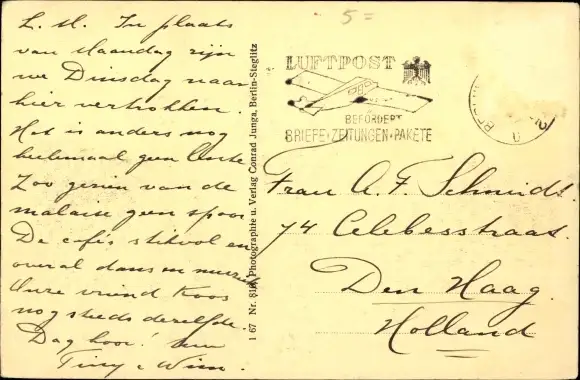 L. M. In plaats
van Maandag zijn
we Dinsdag naar
hier vertrokken.
Het is anders nog
heelemaal geen
Zoo gezien van de
malaise geen spoor
De café's stikvol en
overal dans en muziek
Onze vriend Koos
nog steeds dezelfde.
Dag hoor!
Tiny & Wim.
1 67 Nr. Photographie u. Verlag Conrad Junga, Berlin-Steglitz
5=
LUFTPOST
BEFÖRDERT
BRIEFE·ZEITUNGEN·PAKETE
Frau A. F. Schmidt
74 Celebesstraat.
Den Haag.
Holland